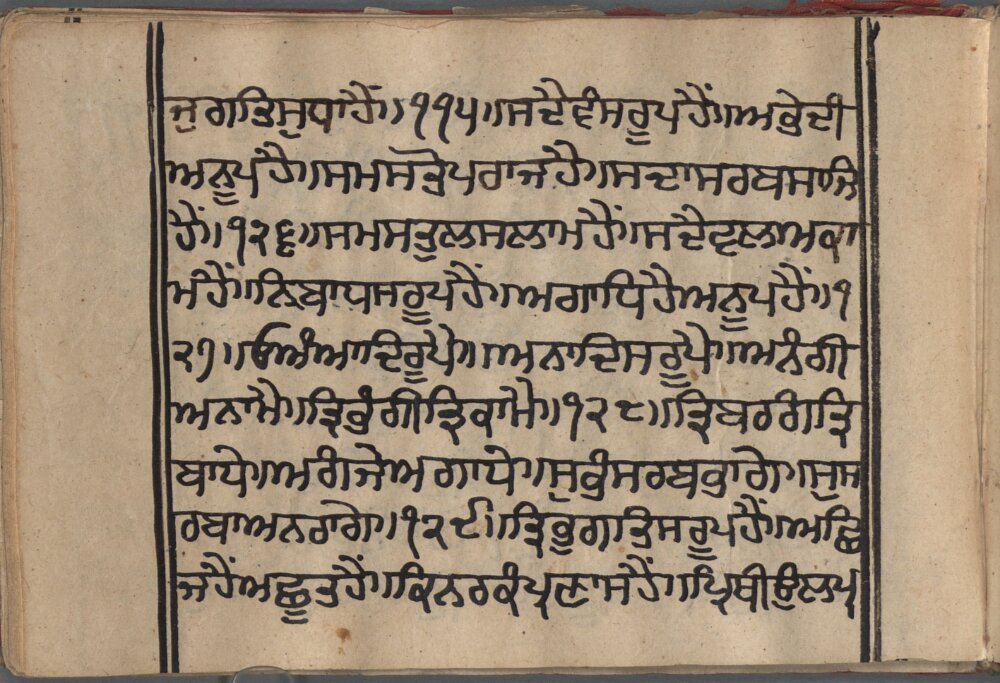 ਜੁਗਤਿਸੁਧਾਹੈਂ॥੧੧੫॥ਸਦੈਵੰਸਰੂਪਹੈਂ॥ਅਭੇਦੀ
ਅਨੂਪਹੈ॥ਸਮਸਤੋਪਰਾਜਹੈ॥ਸਦਾਸਰਬਸਾਜਿ
ਹੈਂ॥੧੨੬॥ਸਮਸਤੁਲਸਲਾਮਹੈਂ॥ਸਦੈਵਲਅਕਾ
ਮਹੈਂ॥ਨ੍ਰਿਬਾਧਸਰੂਪਹੈਂ॥ਅਗਾਧਿਹੈਅਨੂਪਹੈਂ॥੧
੨੭॥ਓਅੰਆਦਿਰੂਪੇ॥ਅਨਾਦਿਸਰੂਪੈ॥ਅਨੰਗੀ
ਅਨਾਮੇ॥ਤ੍ਰਿਭੰਗੀਤ੍ਰਿਕਾਮੇ॥੧੨੮॥ਤ੍ਰਿਬਰਗੰਤ੍ਰਿ
ਬਾਧੇ॥ਅਗੰਜੇਅਗਾਧੇ॥ਸੁਭੰਸਰਬਭਾਗੇ॥ਸੁਸ
ਰਬਾਅਨਰਾਗੇ॥੧੨੯॥ਤ੍ਰਿਭੁਗਤਿਸਰੂਪਹੈਂ॥ਅਛਿ
ਜਹੈਂਅਛੂਤਹੈਂ॥ਕਿਨਰਕੰਪ੍ਰਣਾਸਹੈਂ॥ਪ੍ਰਿਥੀਉਲਪ੍ਰ